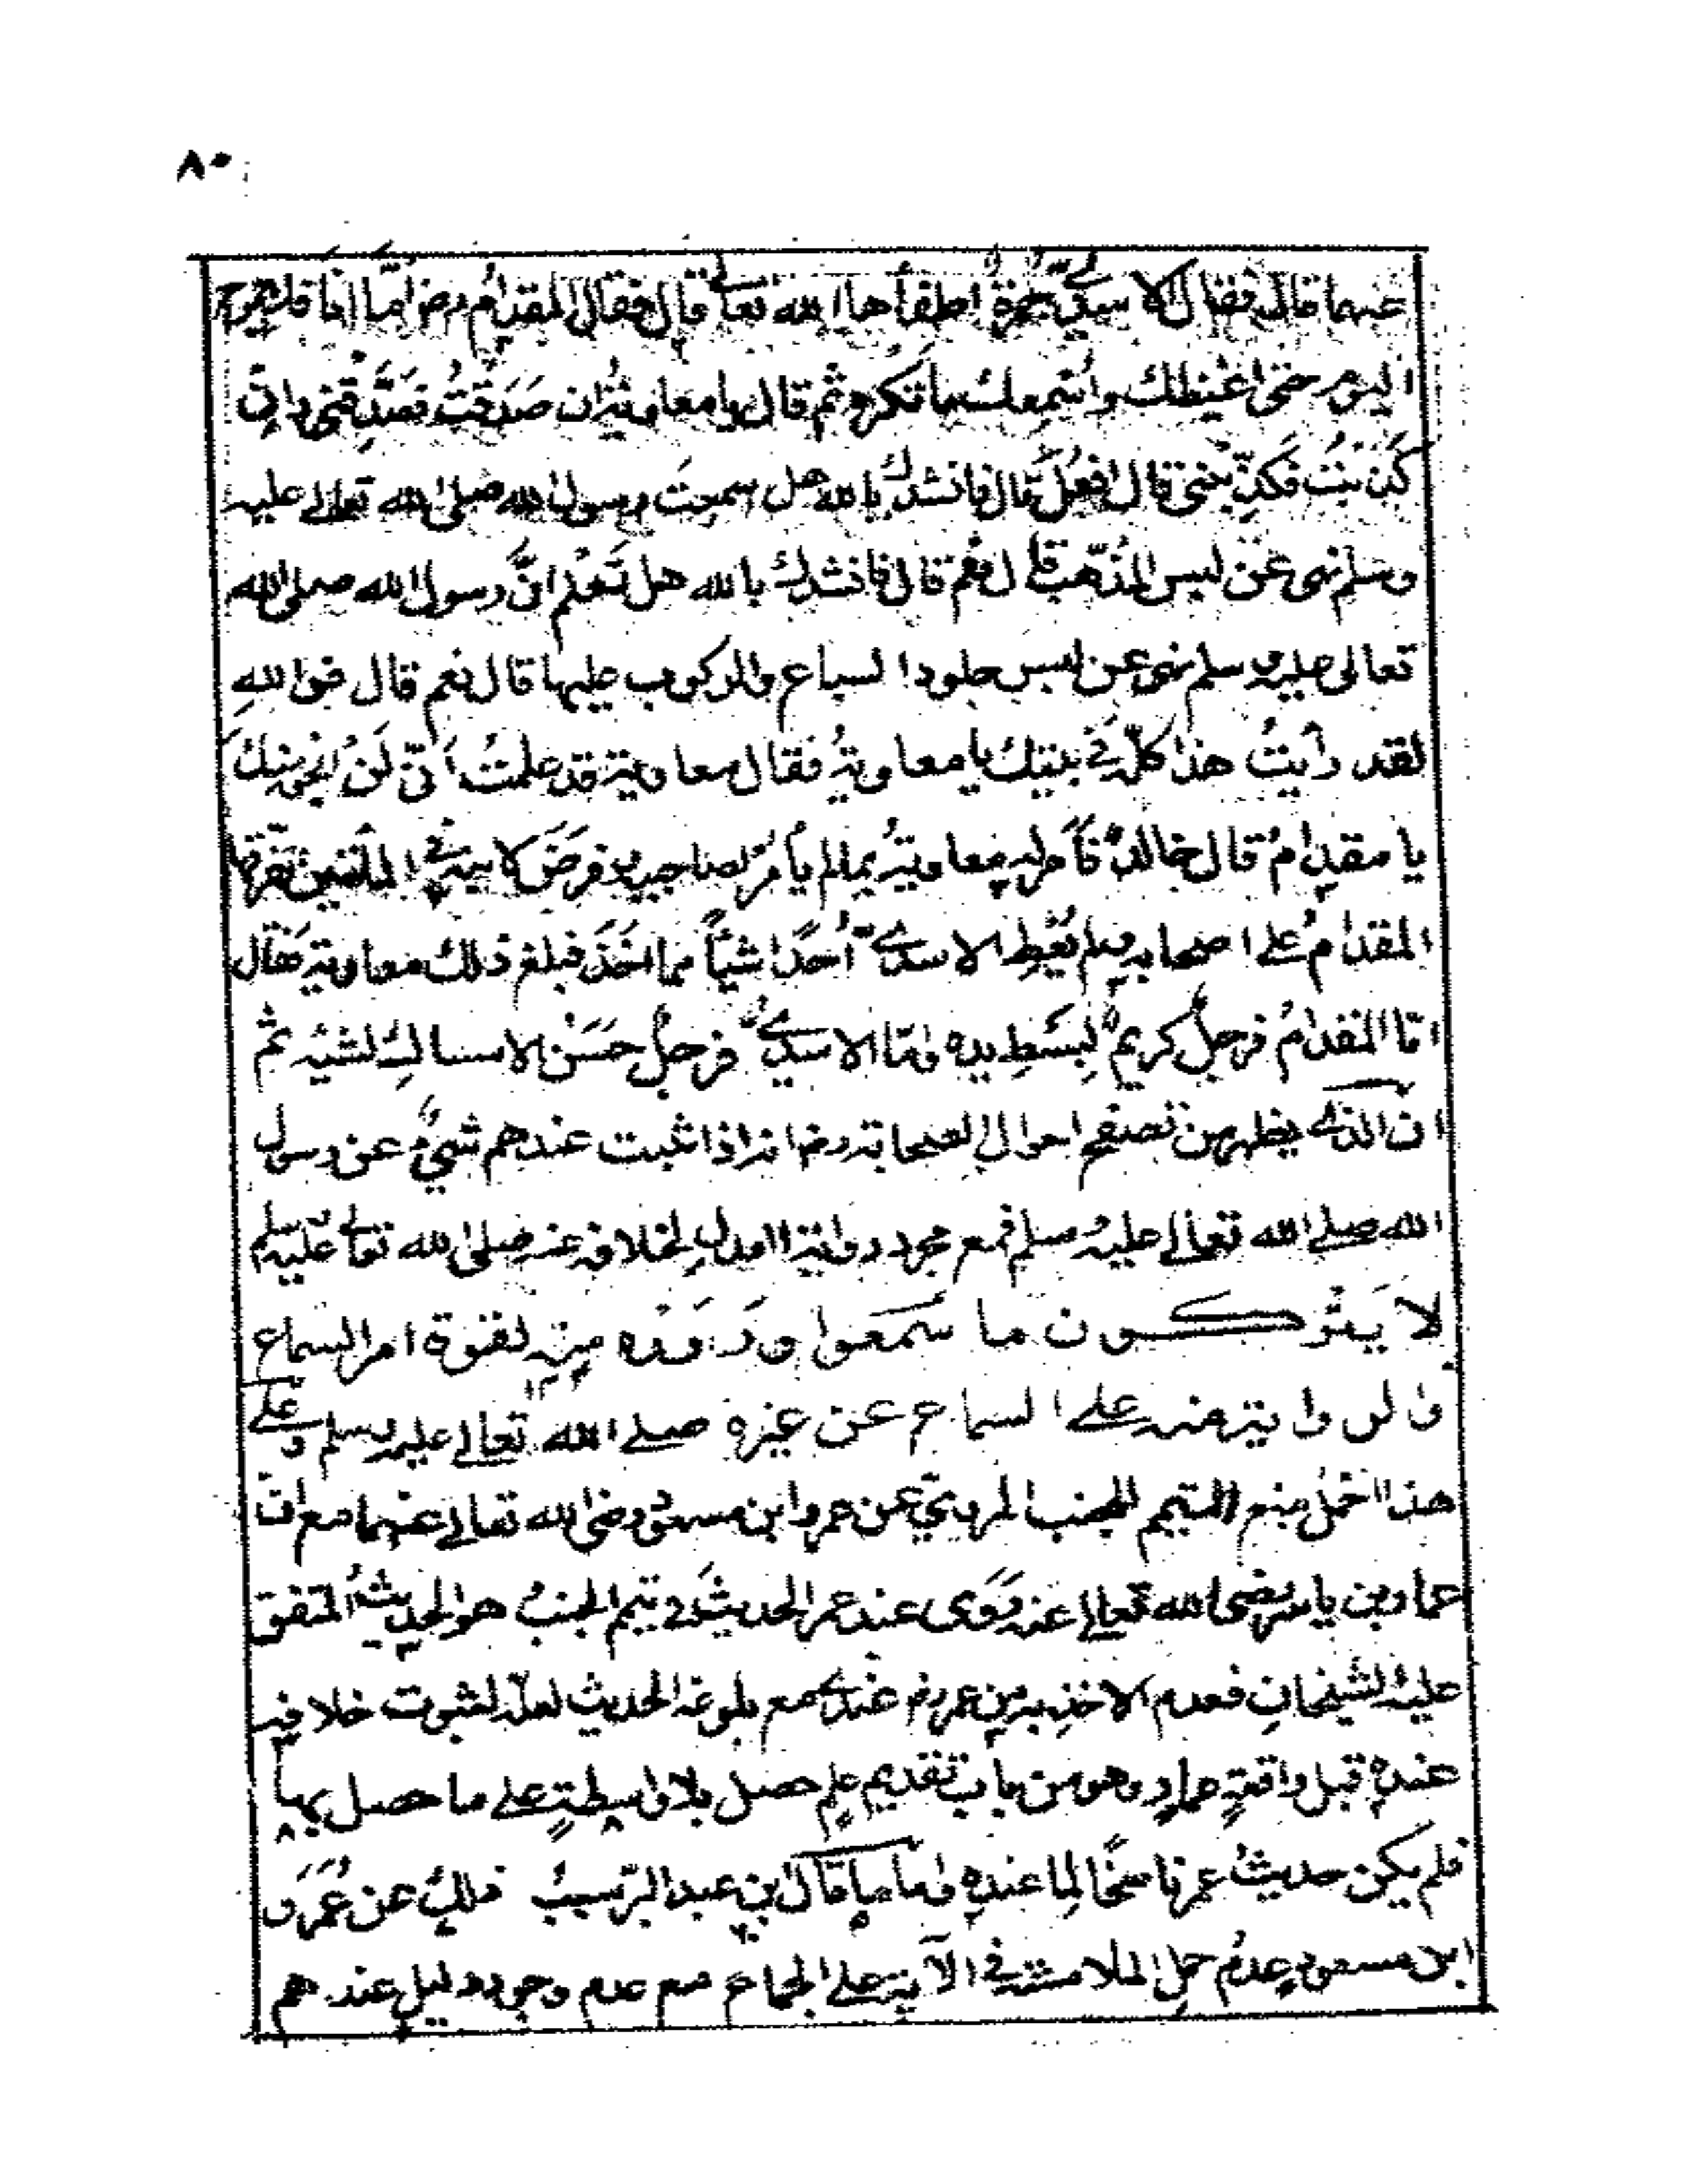 ٨٠
عنهما قال فقال الاسدي جمرة اطفأها الله تعالى قال فقال المقدام رضا امّا انا فلا ابرح
اليوم حتى اغيظك واُسمعك ما تكره ثم قال يا معاوية ان صَدَقتُ فصَدِّقنى وان
كَذبتُ فكذّبنى قال افعلُ قال فانشدك بالله هل سمعتَ رسول الله صلى الله تعالى عليه
وسلم نهى عن لبس المذهّب قال نعم قال فانشدك بالله هل تَعلم انّ رسول الله صلى الله
تعالى عليه وسلم نهى عن لبس جلود السباع والركوب عليها قال نعم قال فوالله
لقد رأيتُ هذا كلّه في بيتك يا معاويةُ فقال معاوية قد علمتُ انّى لَنْ انجو منك
يا مقدامُ قال خالدٌ فَأمر له معاويةُ بما لم يأمر لصاحبيه وفَرَضَ لابنه في المأتين ففرّقها
المقدامُ على اصحابه ولم يُعْطِ الاسديّ اَحدًا شيأً مما اَخَذَ فبلغ ذلك معاوية فقال
امّا المقدامُ فرجلٌ كريمٌ بَسَطَ يده وامّا الاسديّ فرجلٌ حَسَنُ الامساكِ لشيئه ثم
ان الذى يظهر من تصفح احوال الصحابة رضا انه اذا ثبت عندهم شيءٌ عن رسول
الله صلى الله تعالى عليه وسلم فمع مجرد رواية العدل لخلافه عنه صلى الله تعالى عليه وسلم
لا يَتْركون ما سَمعوا ورَوَوْه منه لقوة امر السماع
والرواية عنه على السماع عن غيره صلى الله تعالى عليه وسلم وعلى
هذا احمل منع التيمم للجنب المروي عن عمر وابن مسعود رضى الله تعالى عنهما مع ان
عمار بن ياسر رضى الله تعالى عنه رَوَى عند عمر الحديثَ في تيمم الجنب هو الحديثُ المتفق
عليه الشيخان فعدم الاخذ به من عمر رضـ عندى مع بلوغه الحديث لعله لثبوت خلافه
عنده قبل واقعةِ عمار وهو من باب تقديم علمٍ حصل بلا واسطةٍ على ما حصل بها
فلم يكن حديثُ عمر ناسخًا لما عنده واما ما قال ابن عبد البر سببُ ذلك عن عُمَرَ و
ابن مسعود عدمُ حمل الملامسة في الآية على الجماع مع عدم وجود دليل عندهم